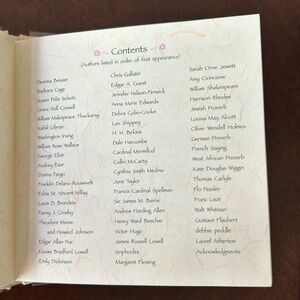 Contents
(Authors listed in order of first appearance)
Deanna Beisser
Barbara Cage
Susan Polis Schutz
Grace Noll Crowell
William Makepeace Thackeray
Kahlil Gibran
Washington Irving
William Ross Wallace
George Eliot
Audrey Esar
Donna Fargo
Franklin Delano Roosevelt
Edna St. Vincent Millay
Louis D. Brandeis
Fanny J. Crosby
Theodore Morse
and Howard Johnson
Edgar Allan Poe
Louise Bradford Lowell
Emily Dickinson
Chris Gallatin
Edgar A. Guest
Jennifer Nelson-Fenwick
Anna Marie Edwards
Debra Colin-Cooke
Lee Shippey
H. H. Birkins
Dale Harcombe
Cardinal Mermillod
Collin McCarty
Cynthia Smith Medina
Jane Taylor
Francis Cardinal Spellman
Sir James M. Barrie
Andrew Harding Allen
Henry Ward Beecher
Victor Hugo
James Russell Lowell
Sophocles
Margaret Fleming
Sarah Orne Jewett
Amy Crincione
William Shakespeare
Harrison Rhodes
Jewish Proverb
Louisa May Alcott
Oliver Wendell Holmes
German Proverb
French Saying
West African Proverb
Kate Douglas Wiggin
Thomas Carlyle
Flo Fessler
Franz Liszt
Walt Whitman
Gustave Flaubert
debbie peddle
Laurel Atherton
Acknowledgments